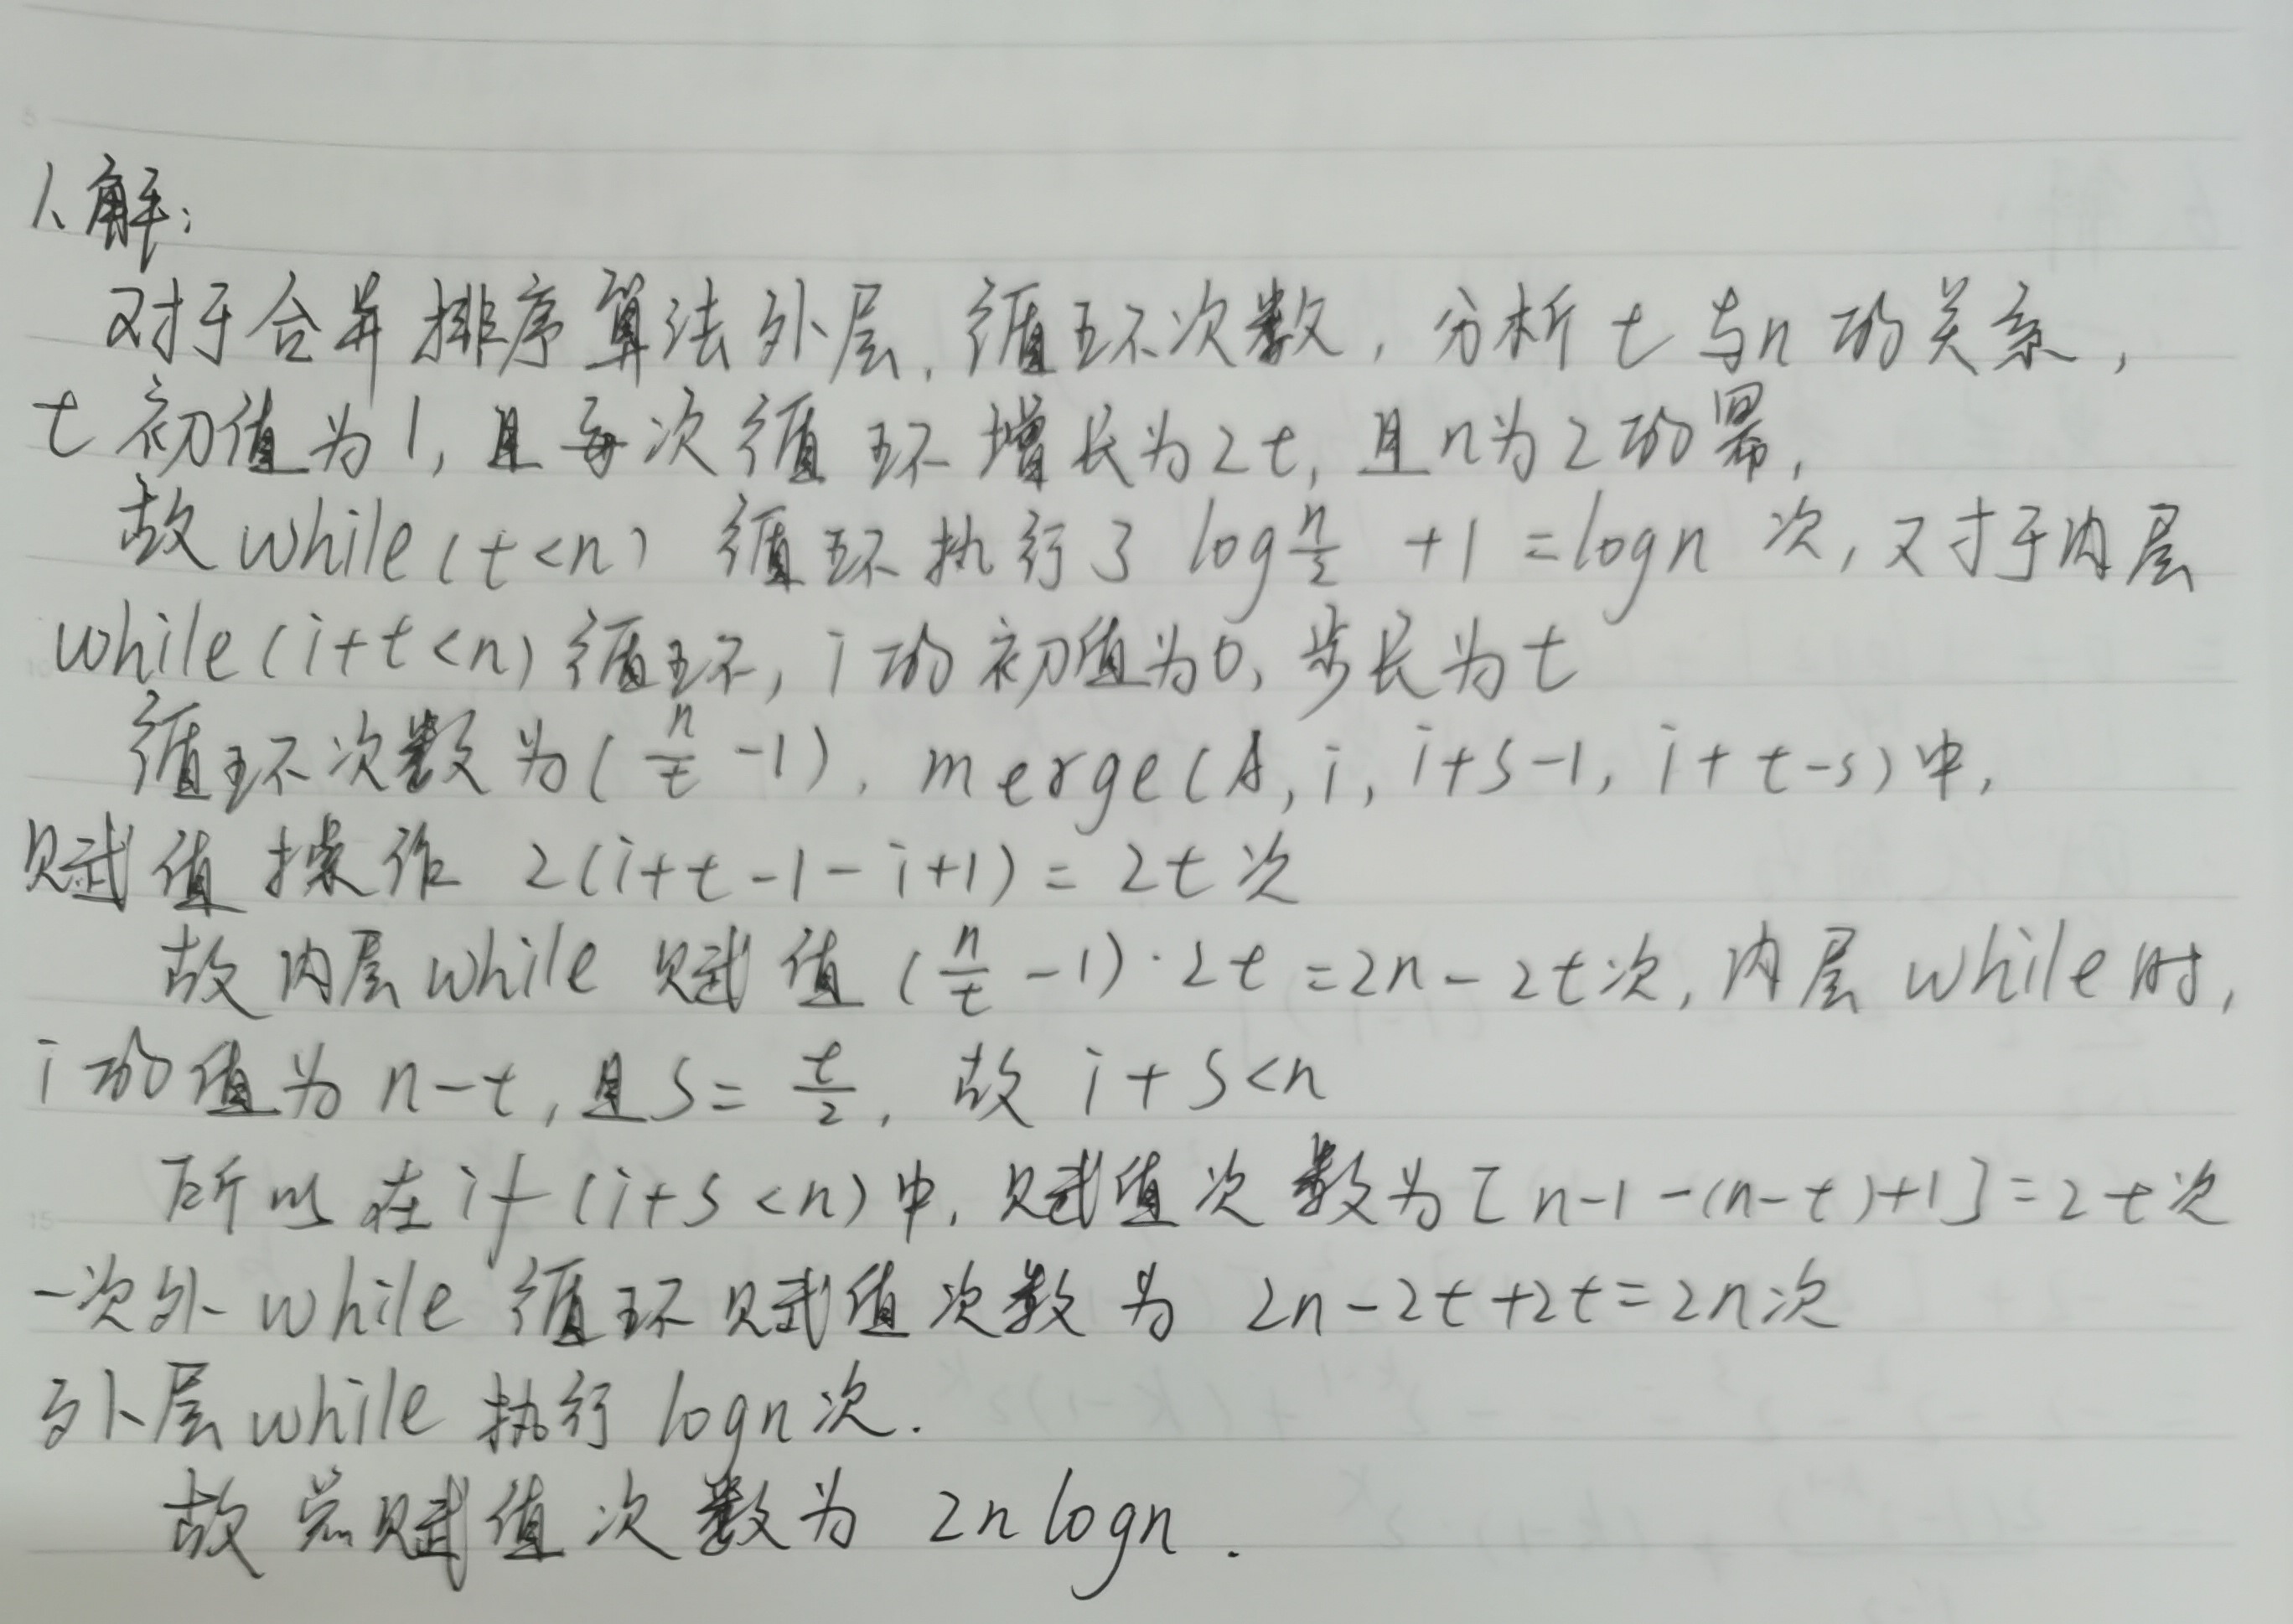 1、解:
对于合并排序算法外层,循环次数,分析t与n的关系,
t初值为1,且每次循环增长为2t,且n为2的幂,
故while(t<n)循环执行了 log n/2 +1=logn 次,又对于内层
while(i+t<n)循环,i的初值为0,步长为t
循环次数为(n/t -1),merge(A,i,i+s-1,i+t-s)中,
赋值操作 2(i+t-1-i+1)=2t次
故内层while赋值(n/t -1)·2t=2n-2t次,内层while时,
i的值为n-t,且S=t/2,故i+s<n
所以在if(i+s<n)中,赋值次数为[n-1-(n-t)+1]=2t次
一次外while循环赋值次数为 2n-2t+2t=2n次
外层while执行logn次.
故总赋值次数为 2nlogn.